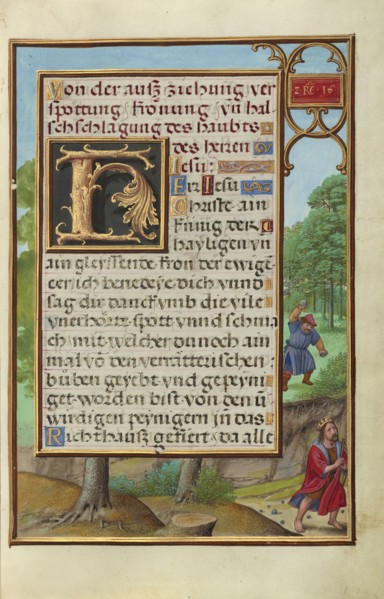 Von der auß ziehung ver
spottung krönung vn̄ hal
schschlagung des haubts
des herren
Jesu:
Herr Jesu
Christe ain
künig der
hayligen vn̄
ain gleyssende kron der ewigē
er ich benedeye dich vnnd
sag dir danck vmb die vile
vnerhörte spott vnnd schma
ch mit welcher du noch ain
mal vō den verrätterischen
büben geyebt vnd gepeyni
get worden bist von den ū
wirdigen peynigern in das
Richthauß gefiert da alle
2. RE. 16